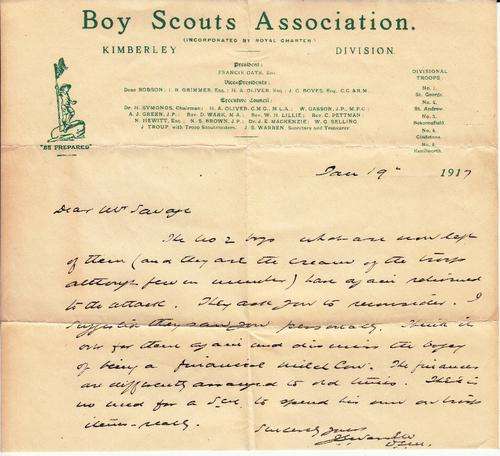 Boy Scouts Association.
(INCORPORATED BY ROYAL CHARTER)
KIMBERLEY DIVISION.
President:
FRANCIS OATS, Esq.
Vice-Presidents:
Dean ROBSON; I. R. GRIMMER, Esq.; H. A. OLIVER, Esq.; J. C. BOYES, Esq. C.C. & R.M.
Executive Council:
Dr. H. SYMONDS, Chairman; H. A. OLIVER, C.M.G., M.L.A.; W. GASSON, J.P., M.P.C.;
A. J. GREEN, J.P.; Rev. D. WARK, M.A.; Rev. W. H. LILLIE; Rev. C. PETTMAN;
N. HEWITT, Esq.; N. S. BROWN, J.P.; Dr. J. E. MACKENZIE; W. G. SELLING,
J. TROUP, with Troop Scoutmasters. J. S. WARREN, Secretary and Treasurer.
DIVISIONAL
TROOPS:
No. 1.
St. George.
St. Andrew.
No. 3.
Beaconsfield.
Gladstone.
Kenilworth.
"BE PREPARED"
Jan 19th 1917
Dear Mr Savage
The No 2 boys who are now left
of them (and they are the cream of the troop
although few in number) have again returned
to the attack. They ask you to reconsider. I
suggested they saw you personally. Think it
over for them again and dismiss the bogey
of being a financial milch cow. The finances
are differently arranged to old times. There is
no need for a S.M. to spend his own on troop
items - really.
Sincerely yours
J S Warren